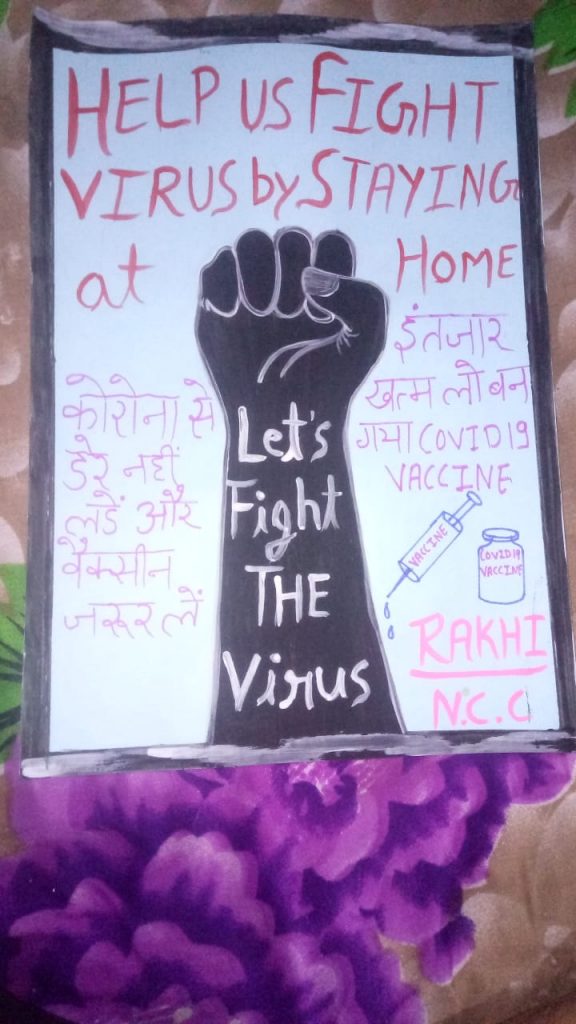 HELP US FIGHT
VIRUS by STAYING
at HOME
इंतजार
खत्म लो बन
गया COVID19
VACCINE
कोरोना से
डेरे नहीं
लडें और
वैक्सीन
जरूर लें
Let's
Fight
THE
Virus
VACCINE
COVID19
VACCINE
RAKHI
N.C.C